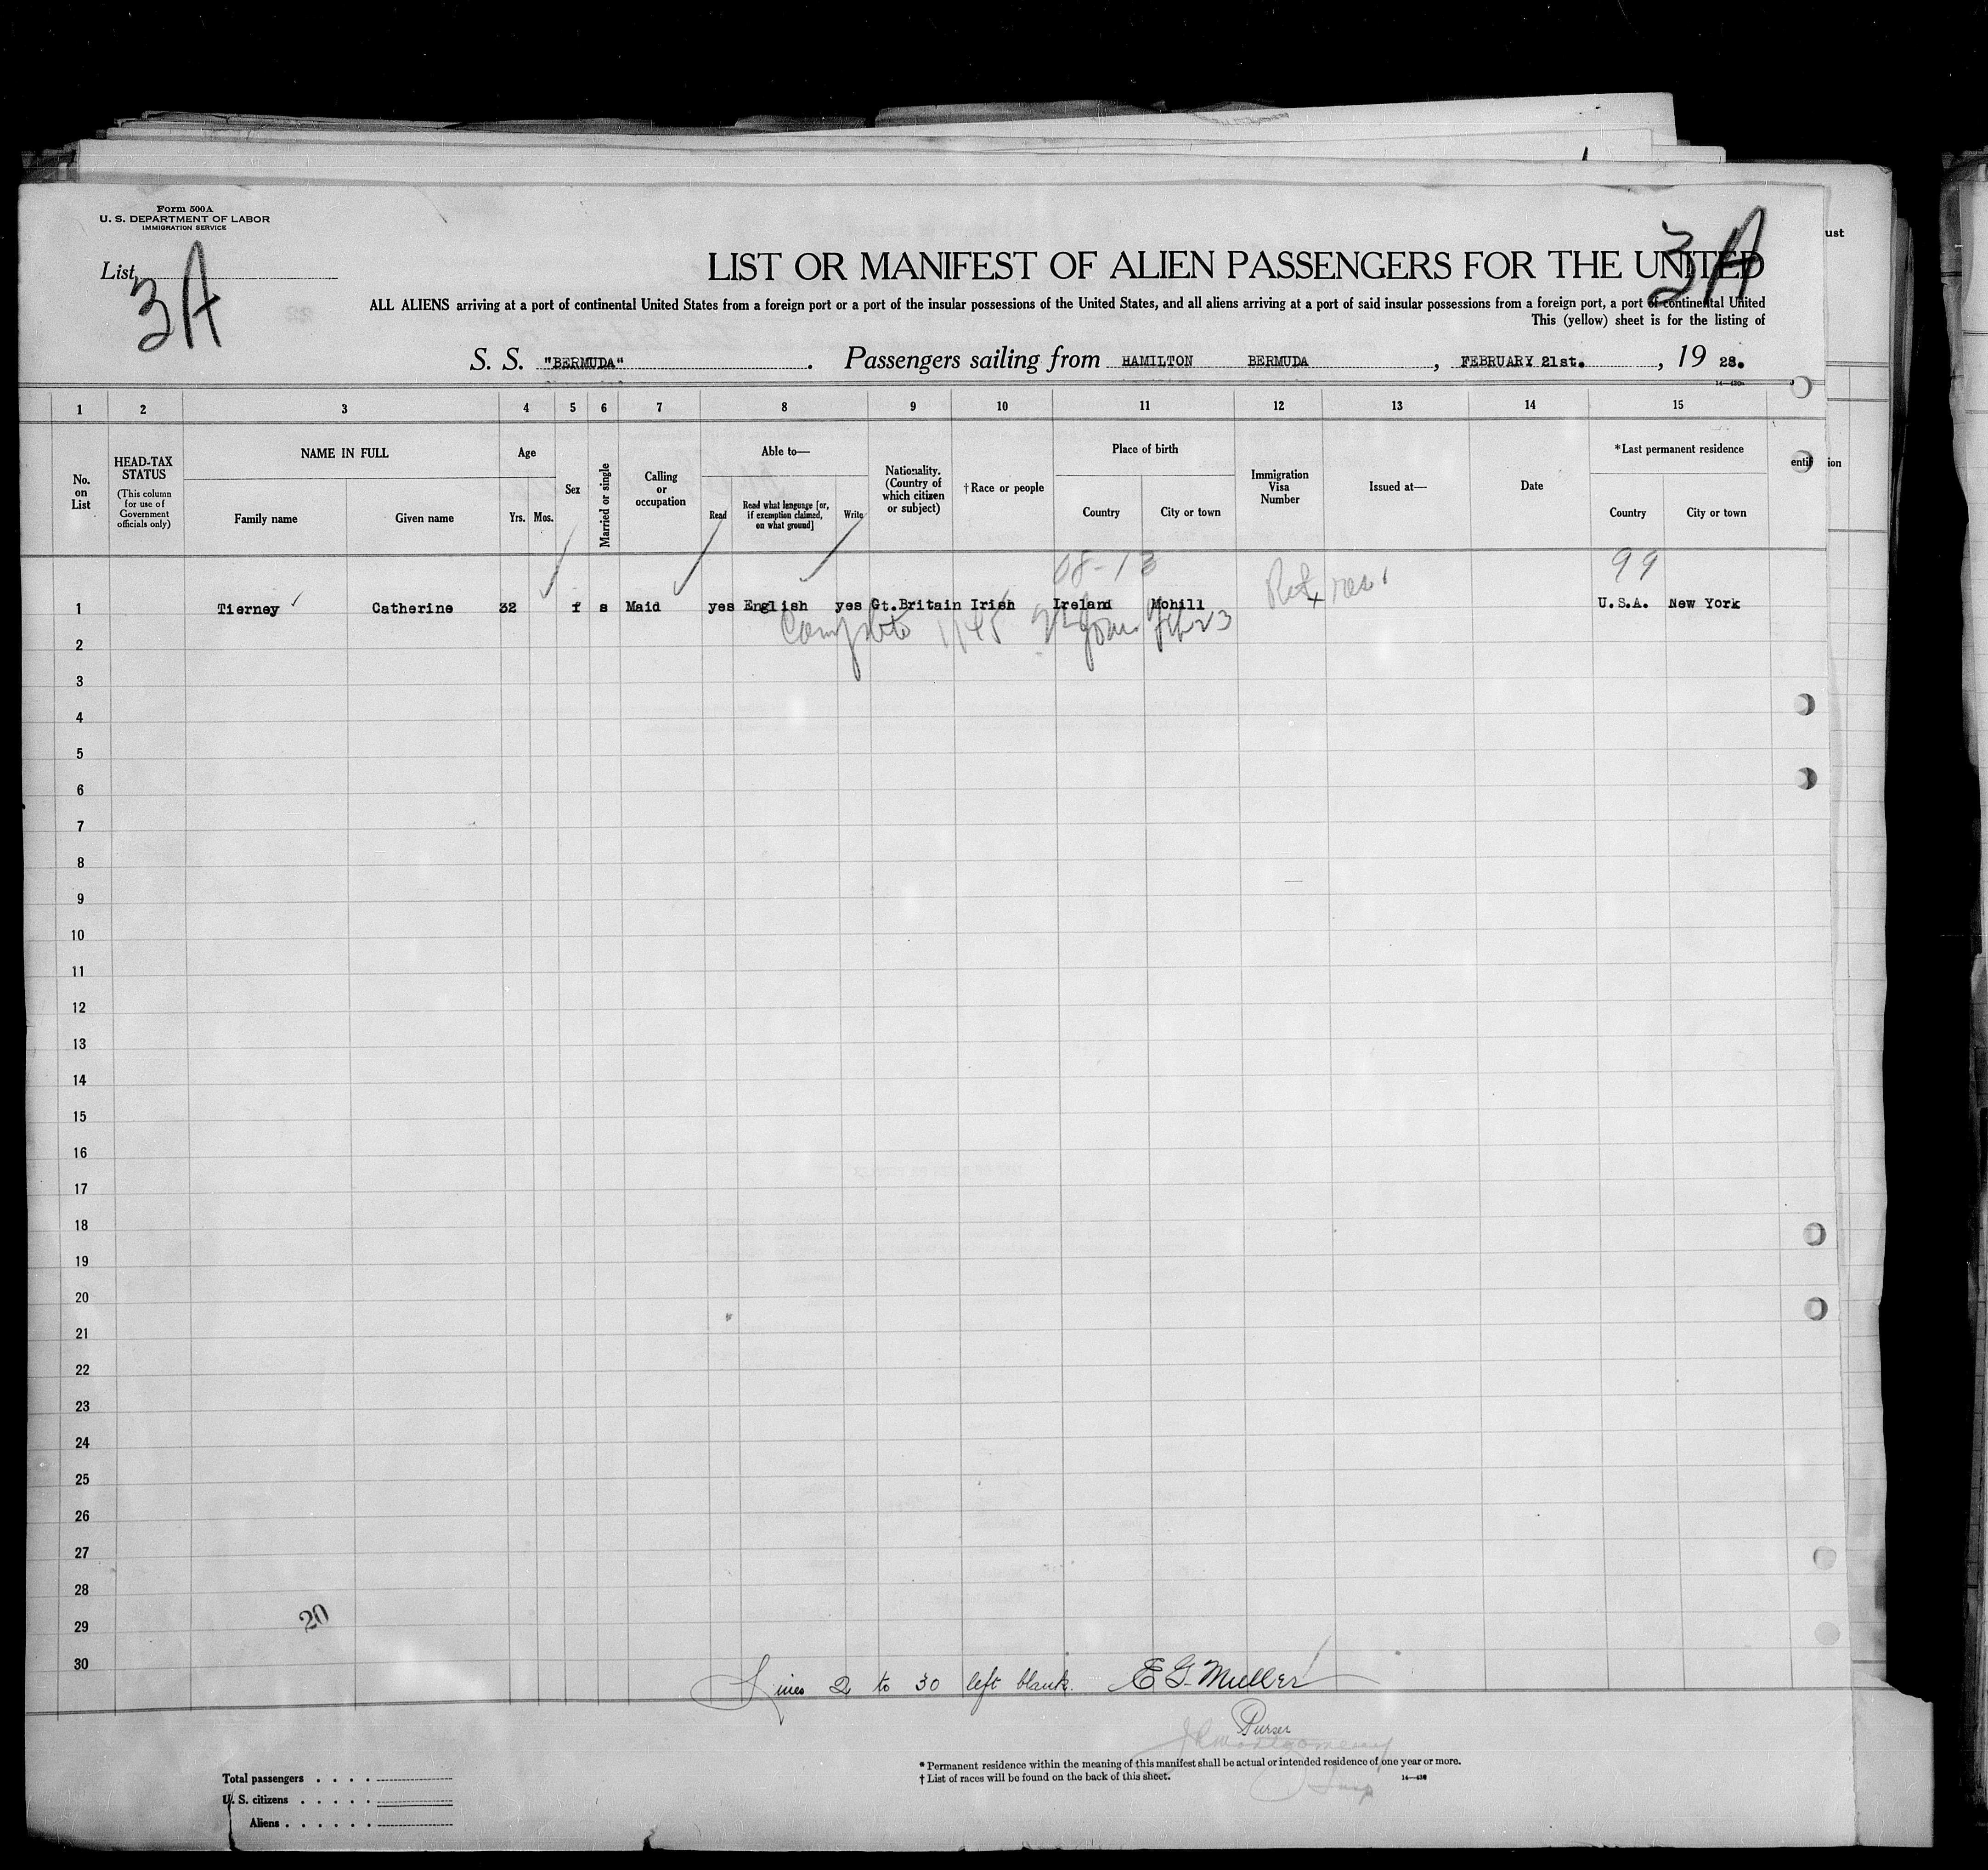 Form 500A
U. S. DEPARTMENT OF LABOR
IMMIGRATION SERVICE
List
3A
3A
ust
LIST OR MANIFEST OF ALIEN PASSENGERS FOR THE UNITED
ALL ALIENS arriving at a port of continental United States from a foreign port or a port of the insular possessions of the United States, and all aliens arriving at a port of said insular possessions from a foreign port, a port of continental United
This (yellow) sheet is for the listing of
S. S. "BERMUDA". Passengers sailing from HAMILTON BERMUDA, FEBRUARY 21st., 19 28.
1 2 3 4 5 6 7 8 9 10 11 12 13 14 15
No. on List
HEAD-TAX STATUS
(This column for use of Government officials only)
NAME IN FULL
Family name Given name
Age
Yrs. Mos.
Sex
Married or single
Calling or occupation
Able to—
Read
Read what language [or, if exemption claimed, on what ground]
Write
Nationality. (Country of which citizen or subject)
†Race or people
Place of birth
Country City or town
Immigration Visa Number
Issued at—
Date
*Last permanent residence
Country City or town
entif ion
08-13 99
1 Tierney Catherine 32 f s Maid yes English yes Gt.Britain Irish Ireland Mohill U.S.A. New York
Complete 1145
2
3
4
5
6
7
8
9
10
11
12
13
14
15
16
17
18
19
20
21
22
23
24
25
26
27
28
29
30
20
Lines 2 to 30 left blank. E G Muller
Purser
* Permanent residence within the meaning of this manifest shall be actual or intended residence of one year or more.
† List of races will be found on the back of this sheet.
Total passengers . . . .
U. S. citizens . . . . .
Aliens . . . . . .